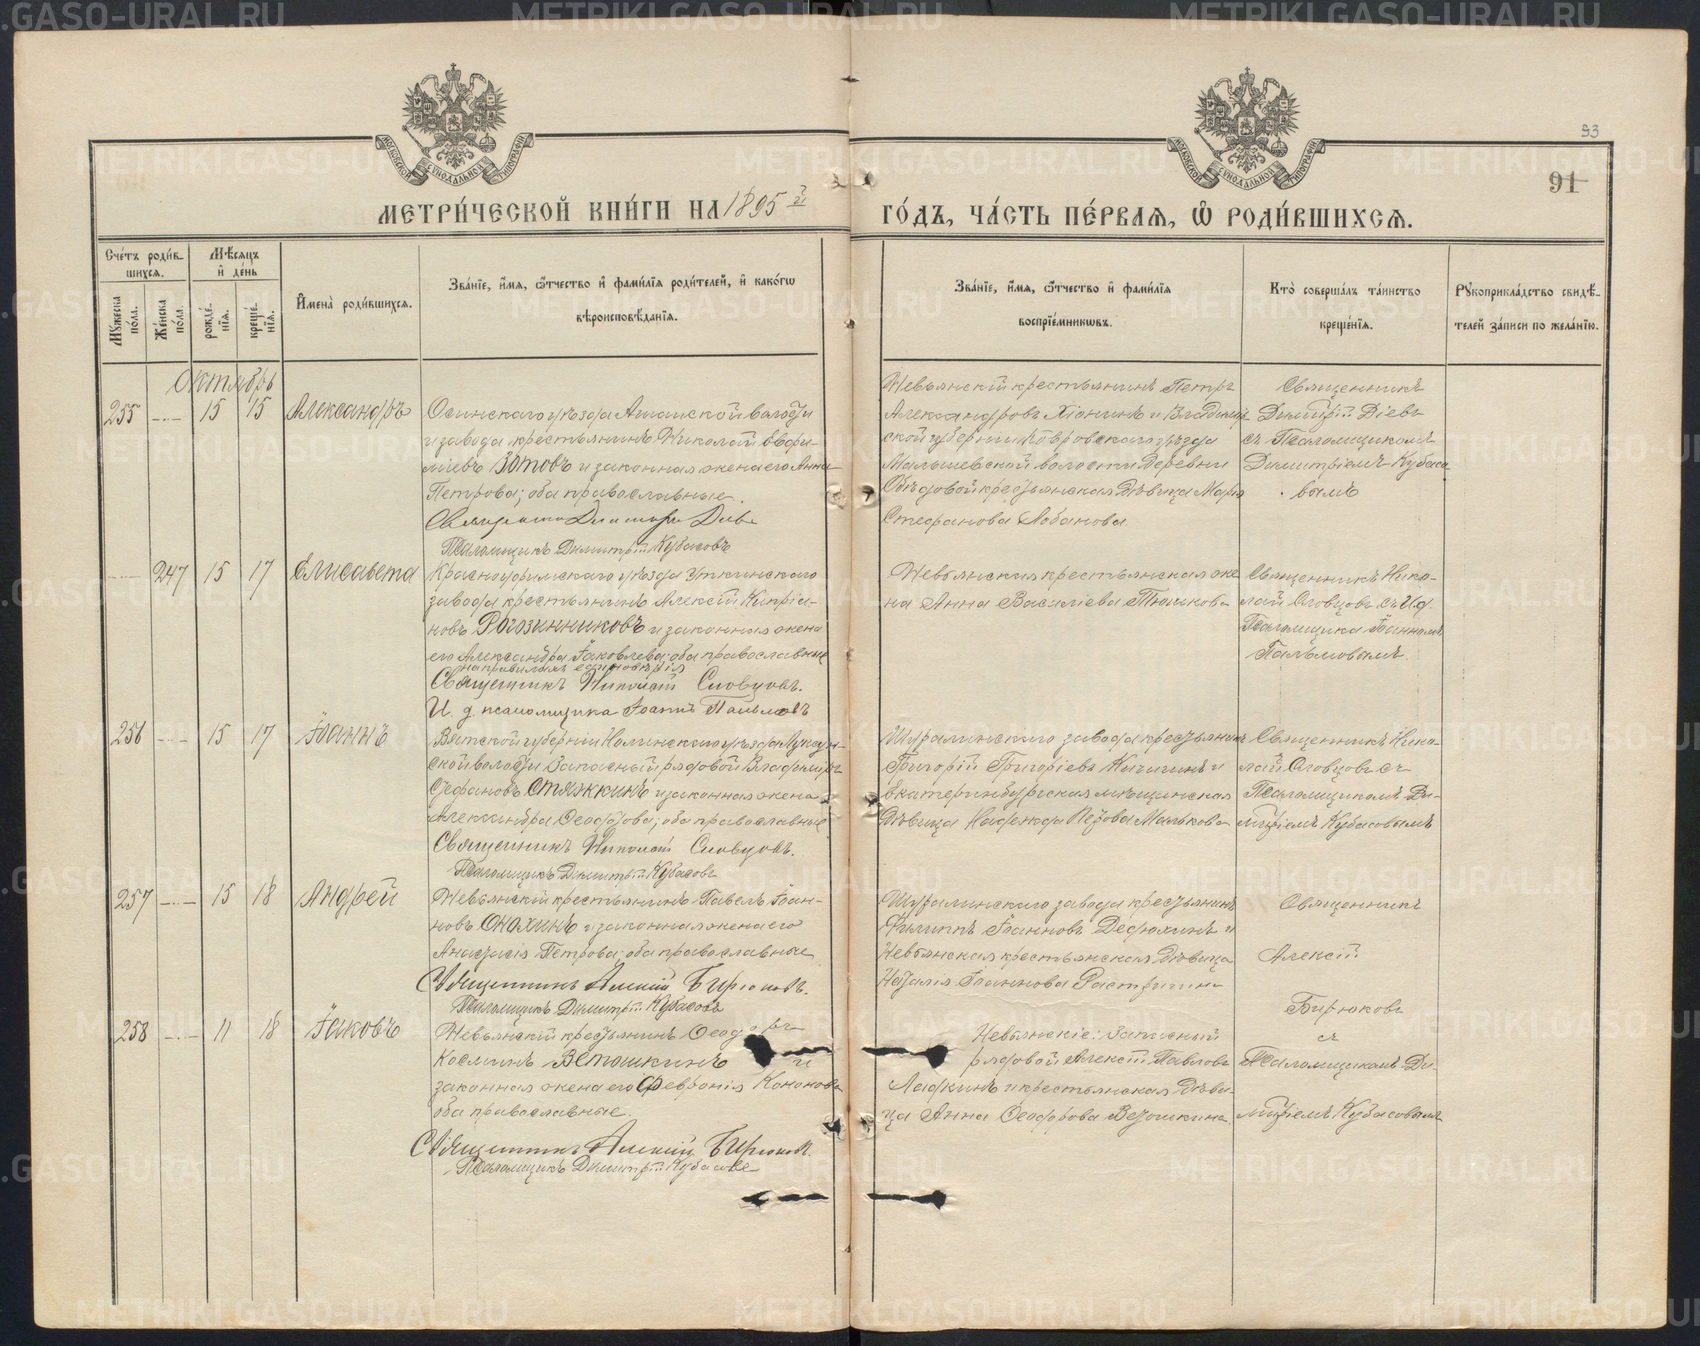 93
91
МЕТРИ́ЧЕСКОЙ КНИ́ГИ НА 1895 й
ГО́ДЪ, ЧА́СТЬ ПЕ́РВАѦ, Ѡ РОДИ́ВШИХСѦ.
Сче́тъ роди́в-
шихсѧ.
Мѣ́сѧцъ
и де́нь
Мꙋ́жеска по́ла.
Же́нска по́ла.
рожде́-нїѧ.
креще́-нїѧ.
И҆мена̀ роди́вшихсѧ.
Зва́нїе, и҆́мѧ, ѻ҆́тчество и҆ фами́лїѧ роди́телей, и҆ како́гѡ
вѣроисповѣ́данїѧ.
Зва́нїе, и҆́мѧ, ѻ҆́тчество и҆ фами́лїѧ
воспрїе́мникѡвъ.
Кто̀ соверша́лъ та́инство
креще́нїѧ.
Рꙋкоприкла́дство свидѣ́-
телей за́писи по жела́нїю.
Октябрь
255 —"— 15 15 Александръ
Осинскаго уѣзда Ашапской волости
и завода крестьянинъ Николай Евфи-
міевъ Зотовъ и законная жена его Анна
Петрова; оба православные.
Священникъ Димитрій Діевъ
Псаломщикъ Димитрій Кубасовъ
Невьянскій крестьянинъ Петръ
Александровъ Хіонинъ и Владимір-
ской губерніи Ковровскаго уѣзда
Малышевской волости деревни
крестьянская дѣвица Марія
Стефанова Лобанова
Священникъ
Димитрій Діевъ
съ Псаломщикомъ
Димитріемъ Кубасо-
вымъ
—"— 247 15 17 Елисавета
Красноуфимскаго уѣзда Уткинскаго
завода крестьянинъ Алексій Кипріа-
новъ Рогозинниковъ и законная жена
его Александра Іаковлева; оба православные
на правилахъ единовѣрія
Священникъ Николай Словцовъ.
И. д. псаломщика Іоаннъ Пальмовъ
Невьянская крестьянская же-
на Анна Василіева Тюшкова
Священникъ Нико-
лай Словцовъ съ И. д.
Псаломщика Іоанномъ
Пальмовымъ.
256 —"— 15 17 Іоаннъ
Вятской губерніи Нолинскаго уѣзда
ской волости Запасный рядовой Владиміръ
Стефановъ Стяжкинъ и законная жена
Александра Ѳеодотова; оба православные
Священникъ Николай Словцовъ.
Псаломщикъ Димитрій Кубасовъ
Шуралинскаго завода крестьянинъ
Григорій Григоріевъ Кичигинъ и
Екатеринбургская мѣщанская
дѣвица Надежда Петрова Малькова
Священникъ Нико-
лай Словцовъ съ
Псаломщикомъ Ди-
митріемъ Кубасовымъ
257 —"— 15 18 Андрей
Невьянскій крестьянинъ Павелъ Іоан-
новъ Сколкинъ и законная жена его
Анастасія Петрова; оба православные
Священникъ Алексій Бирюковъ.
Псаломщикъ Димитрій Кубасовъ
Шуралинскаго завода крестьянинъ
Филиппъ Іоанновъ Дедюхинъ и
Невьянская крестьянская дѣвица
Наталія Іоаннова Растригина
Священникъ
Алексій
Бирюковъ
съ
Псаломщикомъ Ди-
митріемъ Кубасовымъ
258 —"— 11 18 Іаковъ
Невьянскій крестьянинъ Ѳеодоръ
Косминъ Ветошкинъ и
законная жена его Февронія Кононова
оба православные.
Священникъ Алексій Бирюковъ.
Псаломщикъ Димитрій Кубасовъ
Невьянскіе: Запасный
рядовой Алексій Павловъ
Ладкинъ и крестьянская дѣви-
ца Анна Ѳеодорова Ветошкина